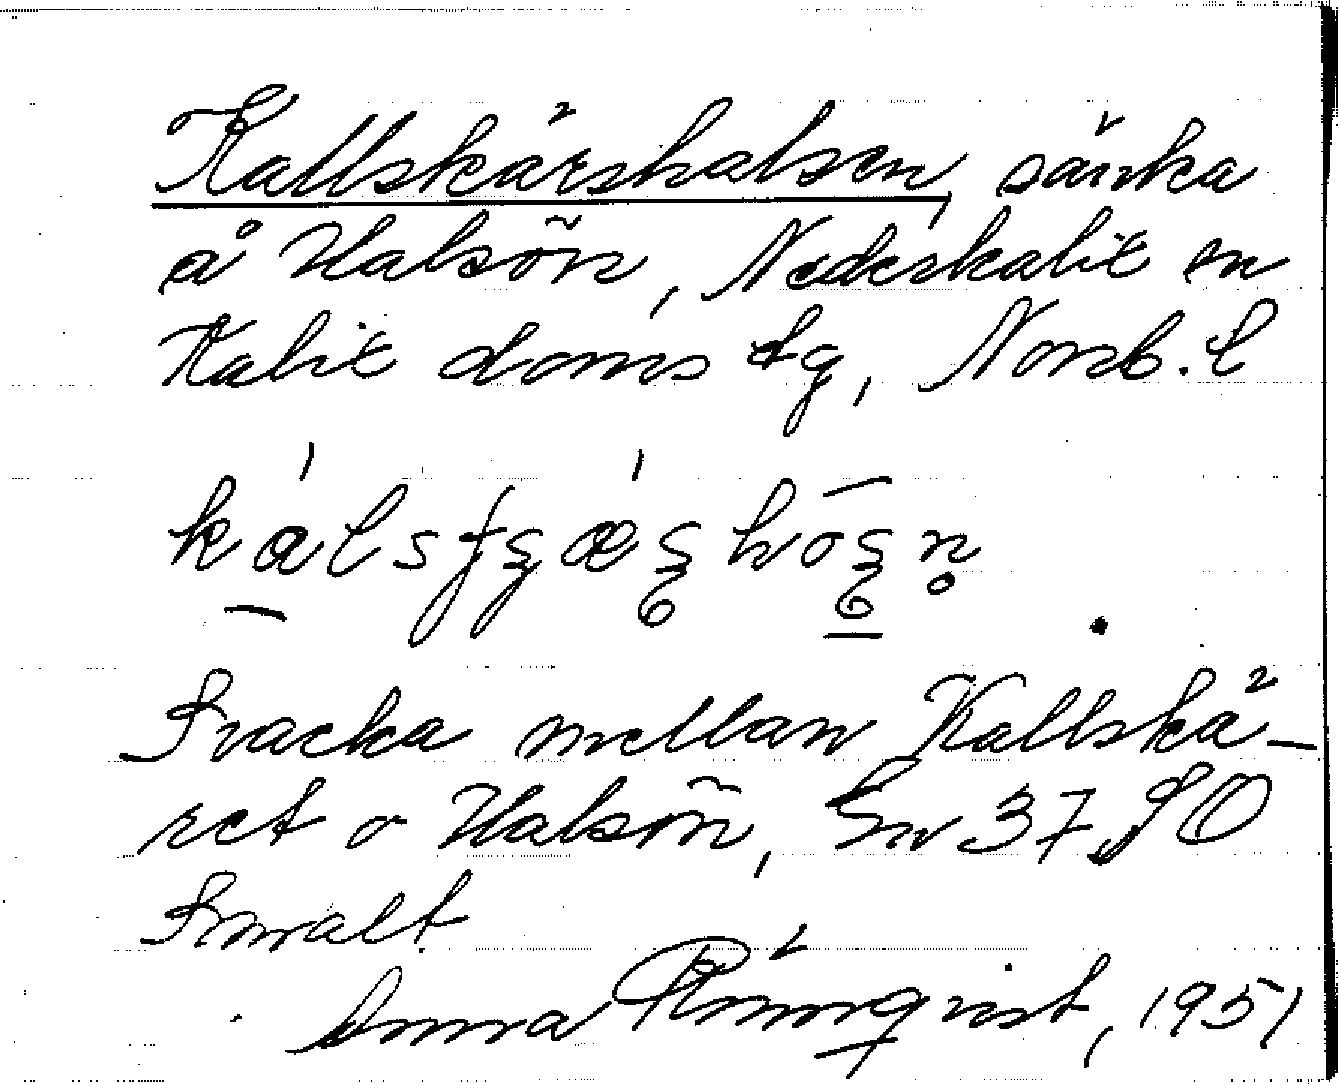 Kallskärshalsen, sänka
å Halsön, Nederkalix sn
Kalix doms tg, Norrb. l
Svacka mellan Kallskä-
ret o Halsön, Ev 37 SO
Smalt
Anna Rönnqvist, 1951